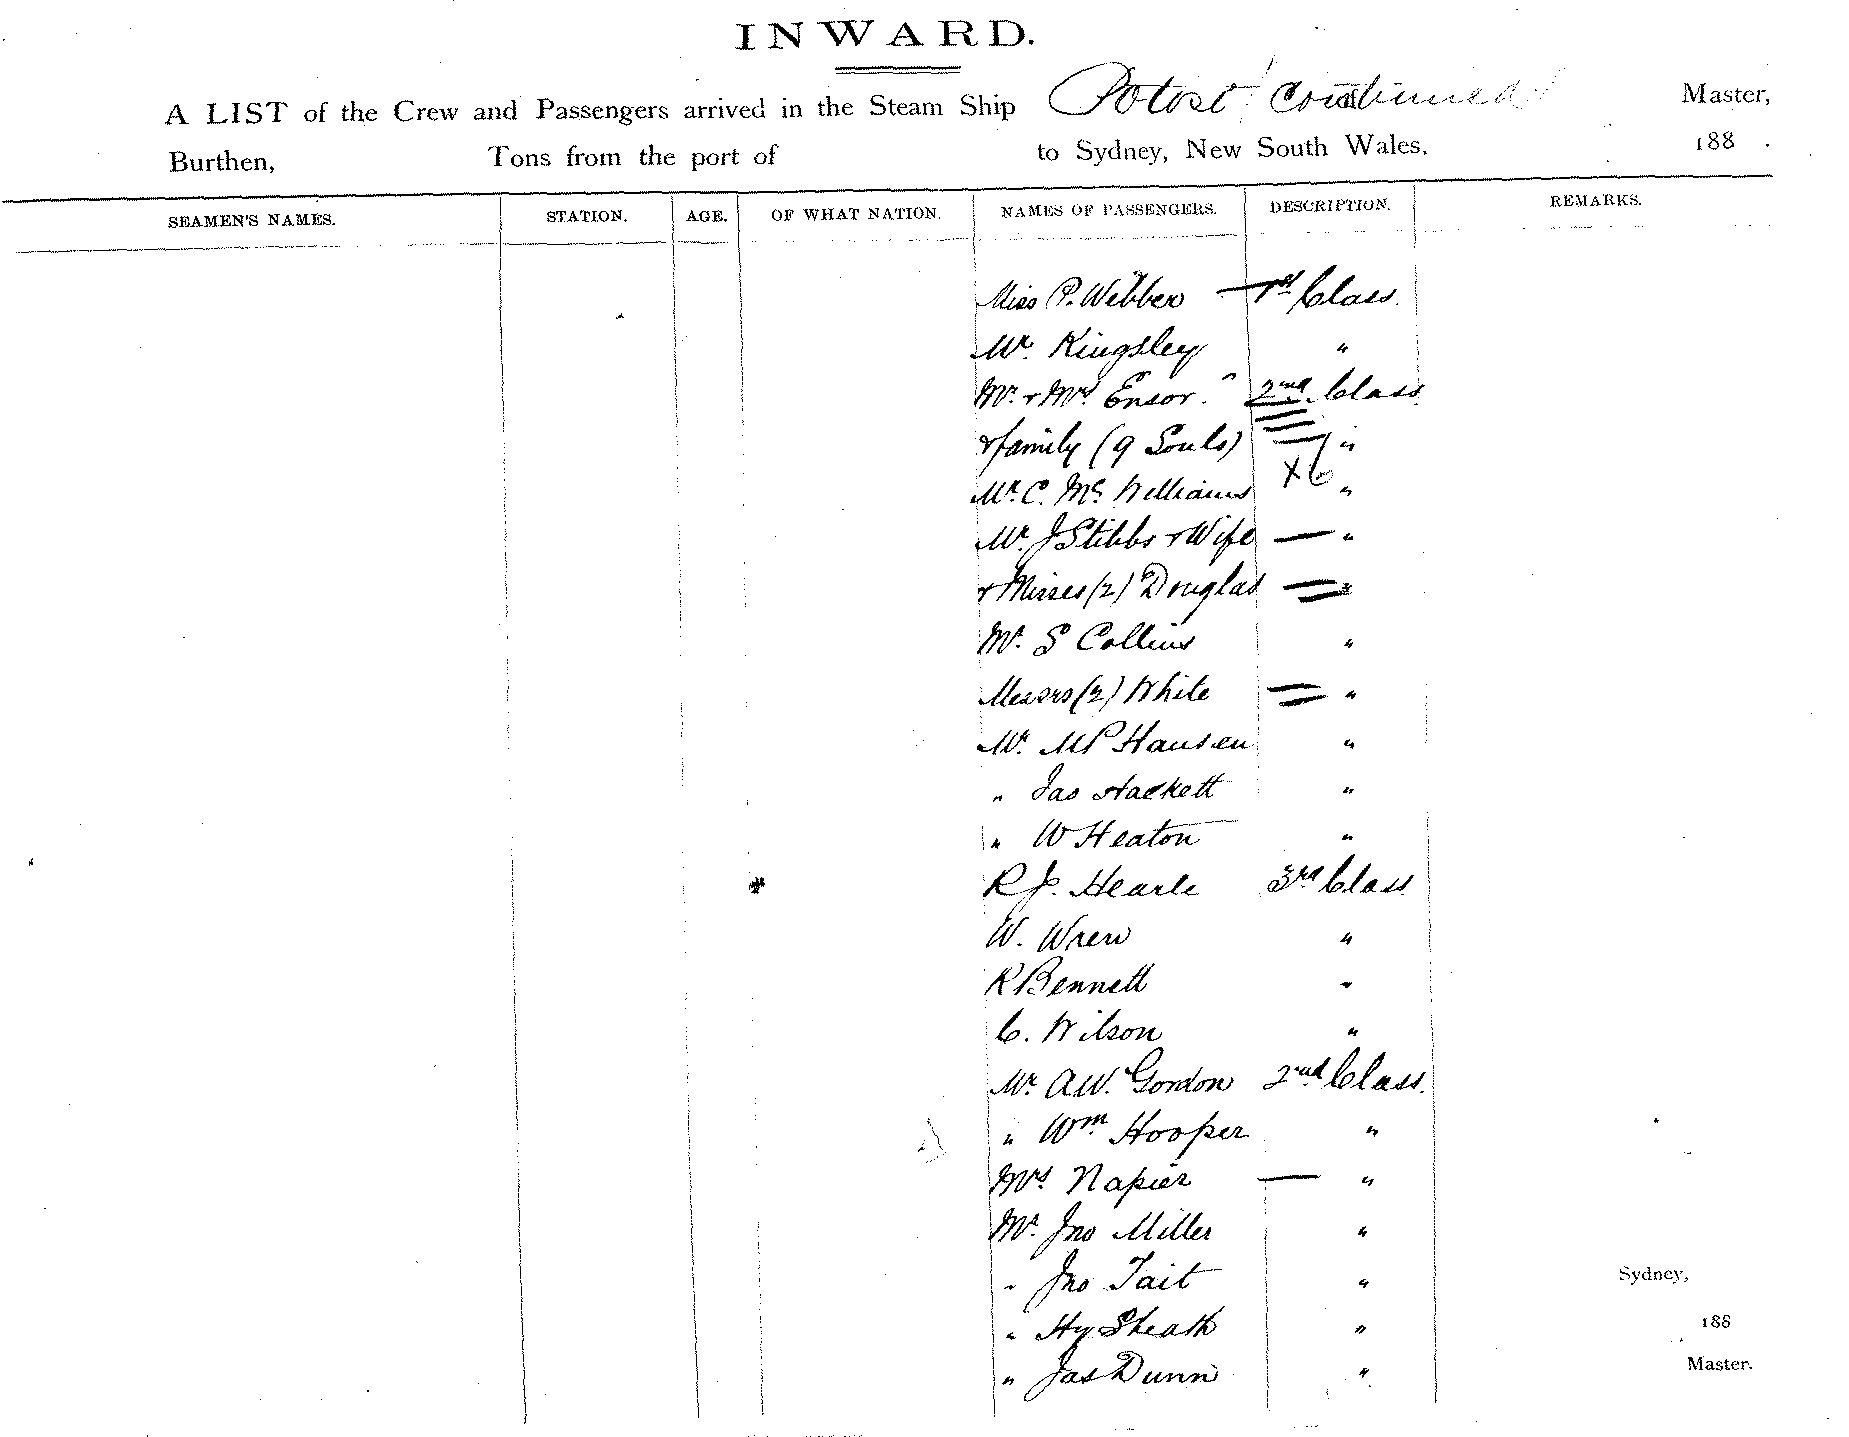 INWARD.
A LIST of the Crew and Passengers arrived in the Steam Ship Potosi Continued Master,
Burthen, Tons from the port of to Sydney, New South Wales, 188 .
SEAMEN'S NAMES. STATION. AGE. OF WHAT NATION. NAMES OF PASSENGERS. DESCRIPTION. REMARKS.
Miss P. Webber — 1st Class
Mr. Kingsley "
Mr. & Mrs Ensor. " 2nd Class
& family (9 Souls) "
x6
Mr. C. Mc Williams "
Mr. J Stibbs & Wife — "
& Misses (2) Douglas = "
Mr. S Collins "
Messrs (2) White = "
Mr. M P Hansen "
" Jas Hackett "
" W Heaton "
R J. Hearle 3rd Class
W. Wren "
R Bennett "
C. Wilson "
Mr. A W. Gordon 2nd Class.
" Wm Hooper "
Mrs Napier — "
Mr. Jno Miller "
" Jno Tait "
Sydney,
" Hy Sheath "
188
" Jas Dunn "
Master.